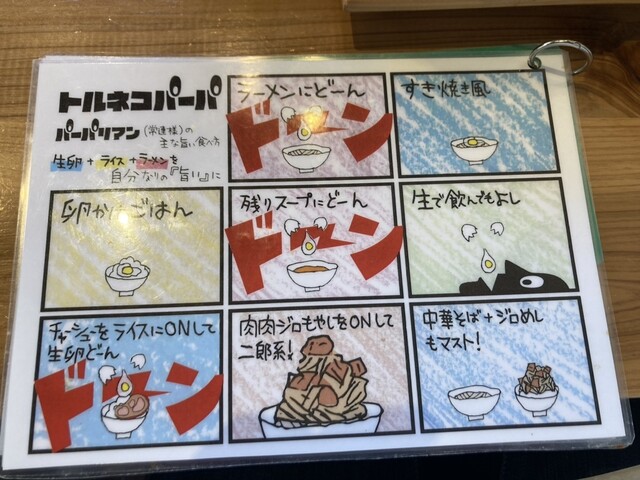 トルネコパーパ
パーパリアン(常連様)の
主な旨い食べ方
生卵+ライス+ラーメンを
自分なりの『旨い』に
ラーメンにどーん
ドーン
すき焼き風
卵かけごはん
残りスープにどーん
ドーン
生で飲んでもよし
チャーシューをライスにONして
生卵どーん
ドーン
肉肉ジロもやしをONして
二郎系!
中華そば+ジロめし
もマスト!